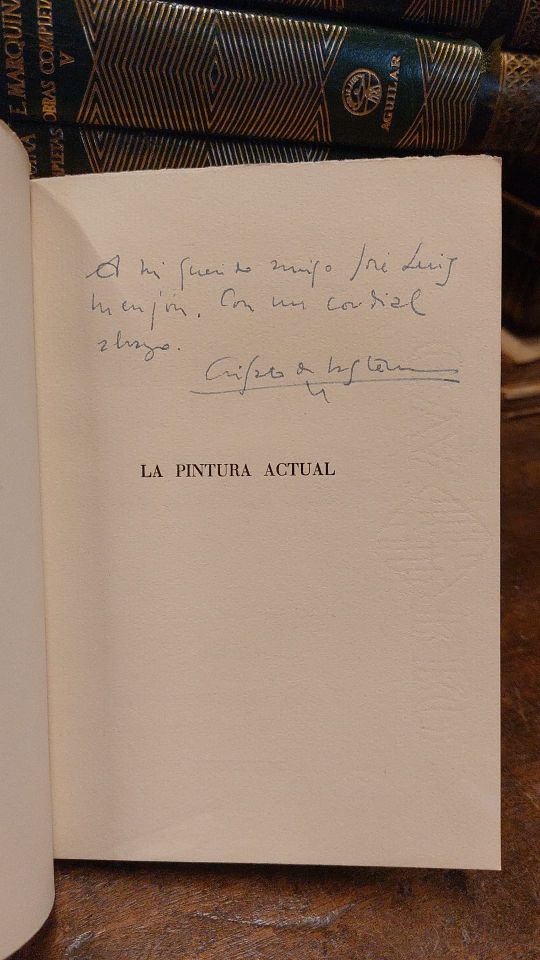 E. MARQUINA
OBRAS COMPLETAS
V
AGUILAR
A mi querido amigo José Luis
Menjón. Con un cordial
abrazo.
LA PINTURA ACTUAL